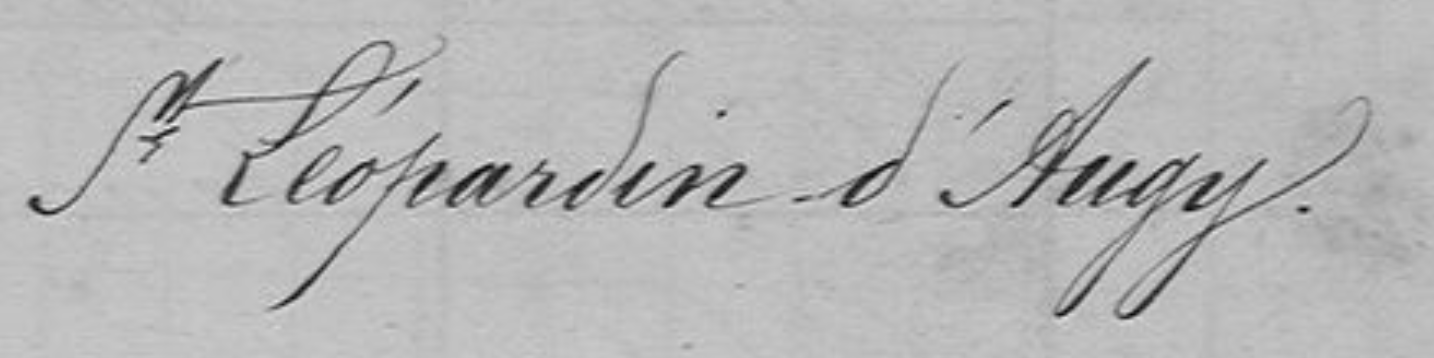 St Léopardin d'Augy.